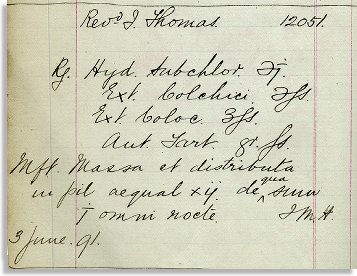 Rev.d J. Thomas. 12051.
Rg. Hyd. Subchlor. ℈j.
Ext. Colchici. ℈fs.
Ext. Coloc. ʒfs.
Ant. Tart. gr. fs.
Mft. Massa et distributa
in pil aequal xij. de qua sum
j omni nocte J M H
3 June. 91.